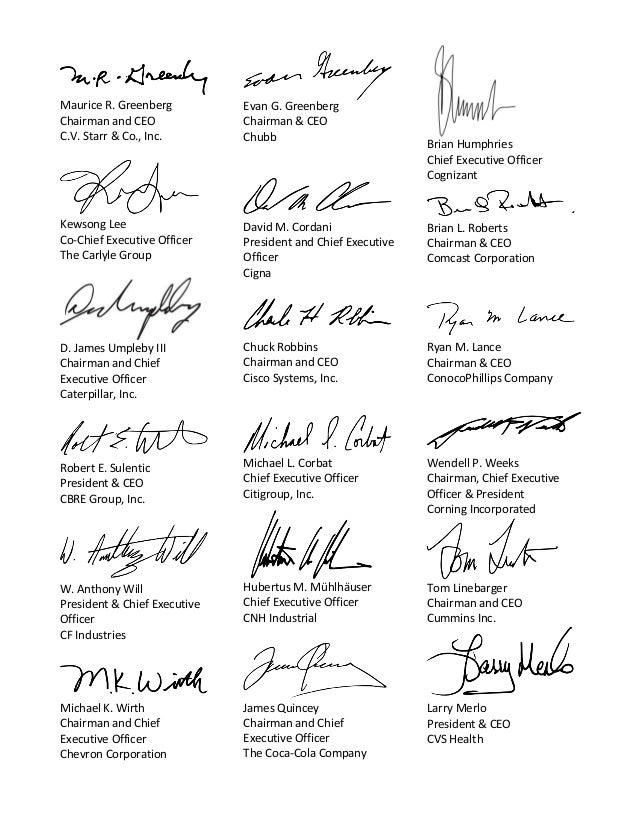 M.R. Greenberg
Maurice R. Greenberg
Chairman and CEO
C.V. Starr & Co., Inc.
Evan Greenberg
Evan G. Greenberg
Chairman & CEO
Chubb
Brian Humphries
Chief Executive Officer
Cognizant
Kewsong Lee
Co-Chief Executive Officer
The Carlyle Group
David M. Cordani
President and Chief Executive
Officer
Cigna
Brian L. Roberts
Chairman & CEO
Comcast Corporation
D. James Umpleby III
Chairman and Chief
Executive Officer
Caterpillar, Inc.
Chuck Robbins
Chairman and CEO
Cisco Systems, Inc.
Ryan M Lance
Ryan M. Lance
Chairman & CEO
ConocoPhillips Company
Robert E. Sulentic
President & CEO
CBRE Group, Inc.
Michael L. Corbat
Michael L. Corbat
Chief Executive Officer
Citigroup, Inc.
Wendell P. Weeks
Chairman, Chief Executive
Officer & President
Corning Incorporated
W. Anthony Will
W. Anthony Will
President & Chief Executive
Officer
CF Industries
Hubertus M. Mühlhäuser
Chief Executive Officer
CNH Industrial
Tom Linebarger
Chairman and CEO
Cummins Inc.
M.K. Wirth
Michael K. Wirth
Chairman and Chief
Executive Officer
Chevron Corporation
James Quincey
Chairman and Chief
Executive Officer
The Coca-Cola Company
Larry Merlo
Larry Merlo
President & CEO
CVS Health